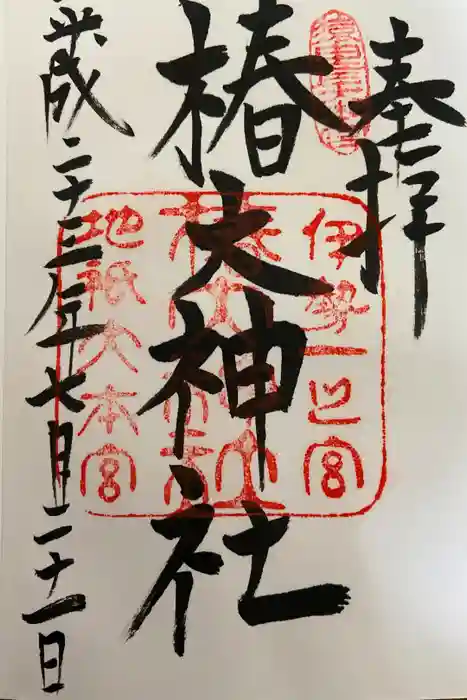 奉拝
伊勢一之宮
椿大神社
椿大神社
地祇大本宮
平成二十三年七月二十一日